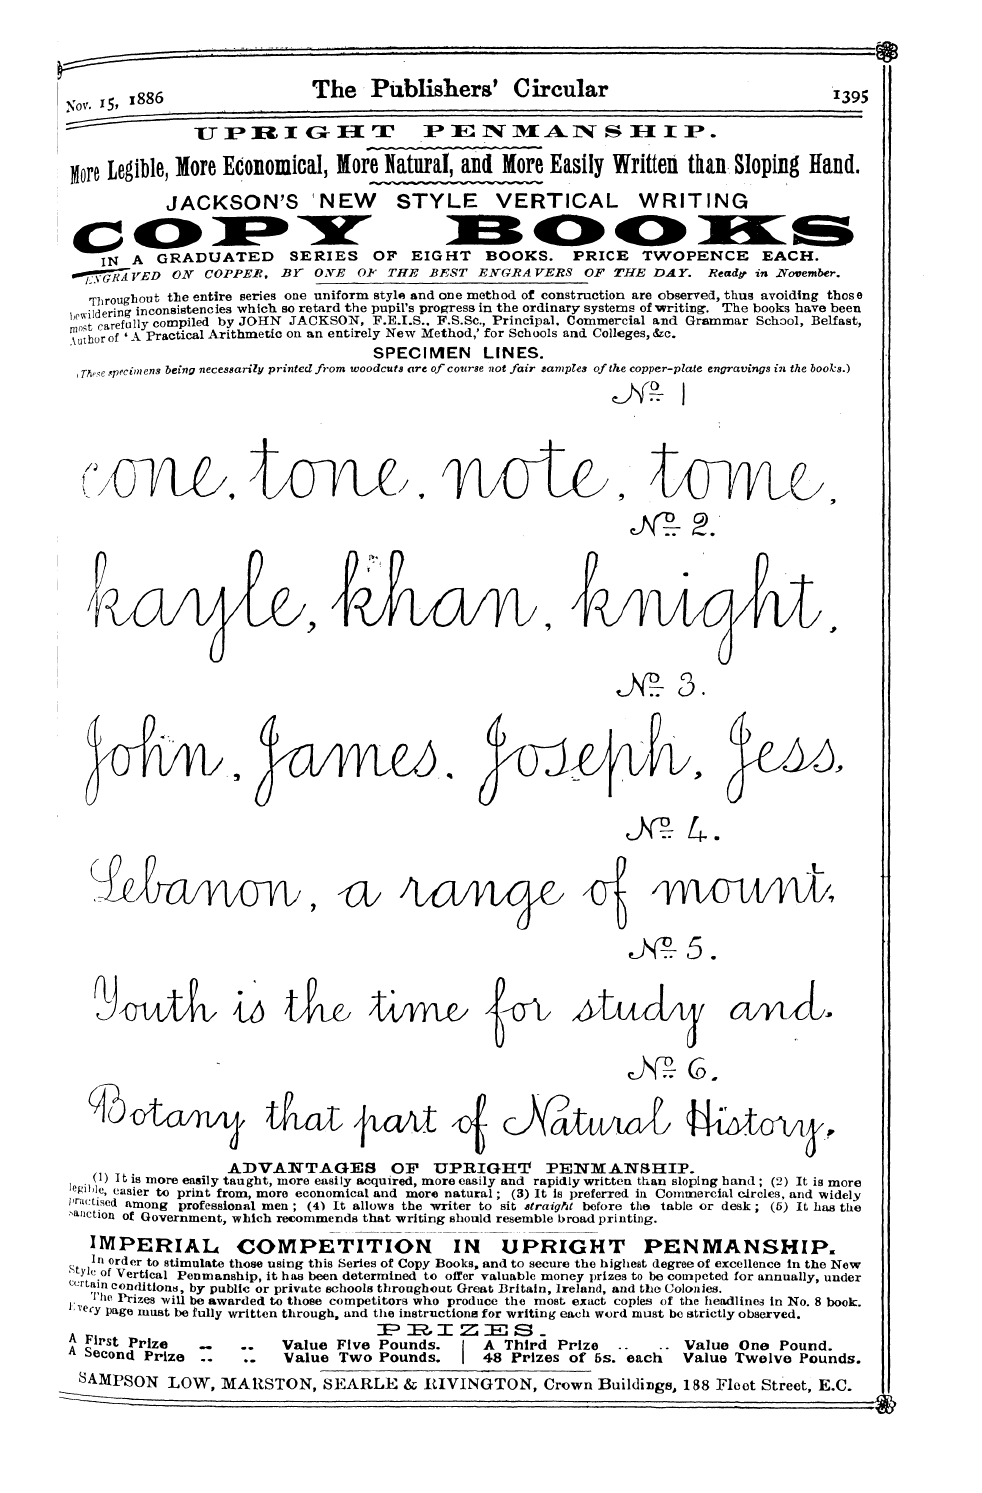 Nov. 15, 1886 The Publishers' Circular 1395
UPRIGHT PENMANSHIP.
More Legible, More Economical, More Natural, and More Easily Written than Sloping Hand.
JACKSON'S NEW STYLE VERTICAL WRITING
COPY BOOKS
IN A GRADUATED SERIES OF EIGHT BOOKS. PRICE TWOPENCE EACH.
ENGRAVED ON COPPER, BY ONE OF THE BEST ENGRAVERS OF THE DAY. Ready in November.
Throughout the entire series one uniform style and one method of construction are observed, thus avoiding those
bewildering inconsistencies which so retard the pupil's progress in the ordinary systems of writing. The books have been
most carefully compiled by JOHN JACKSON, F.E.I.S., F.S.Sc., Principal, Commercial and Grammar School, Belfast,
Author of 'A Practical Arithmetic on an entirely New Method,' for Schools and Colleges, &c.
SPECIMEN LINES.
(These specimens being necessarily printed from woodcuts are of course not fair samples of the copper-plate engravings in the books.)
No. 1
cone, tone, note, tome,
No. 2.
kayle, khan, knight,
No. 3.
John, James, Joseph, Jess,
No. 4.
Lebanon, a range of mount,
No. 5.
Youth is the time for study and.
No. 6.
Botany that part of Natural History,
ADVANTAGES OF UPRIGHT PENMANSHIP.
(1) It is more easily taught, more easily acquired, more easily and rapidly written than sloping hand; (2) It is more
legible, easier to print from, more economical and more natural; (3) It is preferred in Commercial circles, and widely
practised among professional men; (4) It allows the writer to sit straight before the table or desk; (5) It has the
sanction of Government, which recommends that writing should resemble broad printing.
IMPERIAL COMPETITION IN UPRIGHT PENMANSHIP.
In order to stimulate those using this Series of Copy Books, and to secure the highest degree of excellence in the New
Style of Vertical Penmanship, it has been determined to offer valuable money prizes to be competed for annually, under
certain conditions, by public or private schools throughout Great Britain, Ireland, and the Colonies.
The Prizes will be awarded to those competitors who produce the most exact copies of the headlines in No. 8 book.
Every page must be fully written through, and the instructions for writing each word must be strictly observed.
PRIZES.
A First Prize .. .. Value Five Pounds. | A Third Prize .. .. Value One Pound.
A Second Prize .. .. Value Two Pounds. | 48 Prizes of 5s. each Value Twelve Pounds.
SAMPSON LOW, MARSTON, SEARLE & RIVINGTON, Crown Buildings, 188 Fleet Street, E.C.